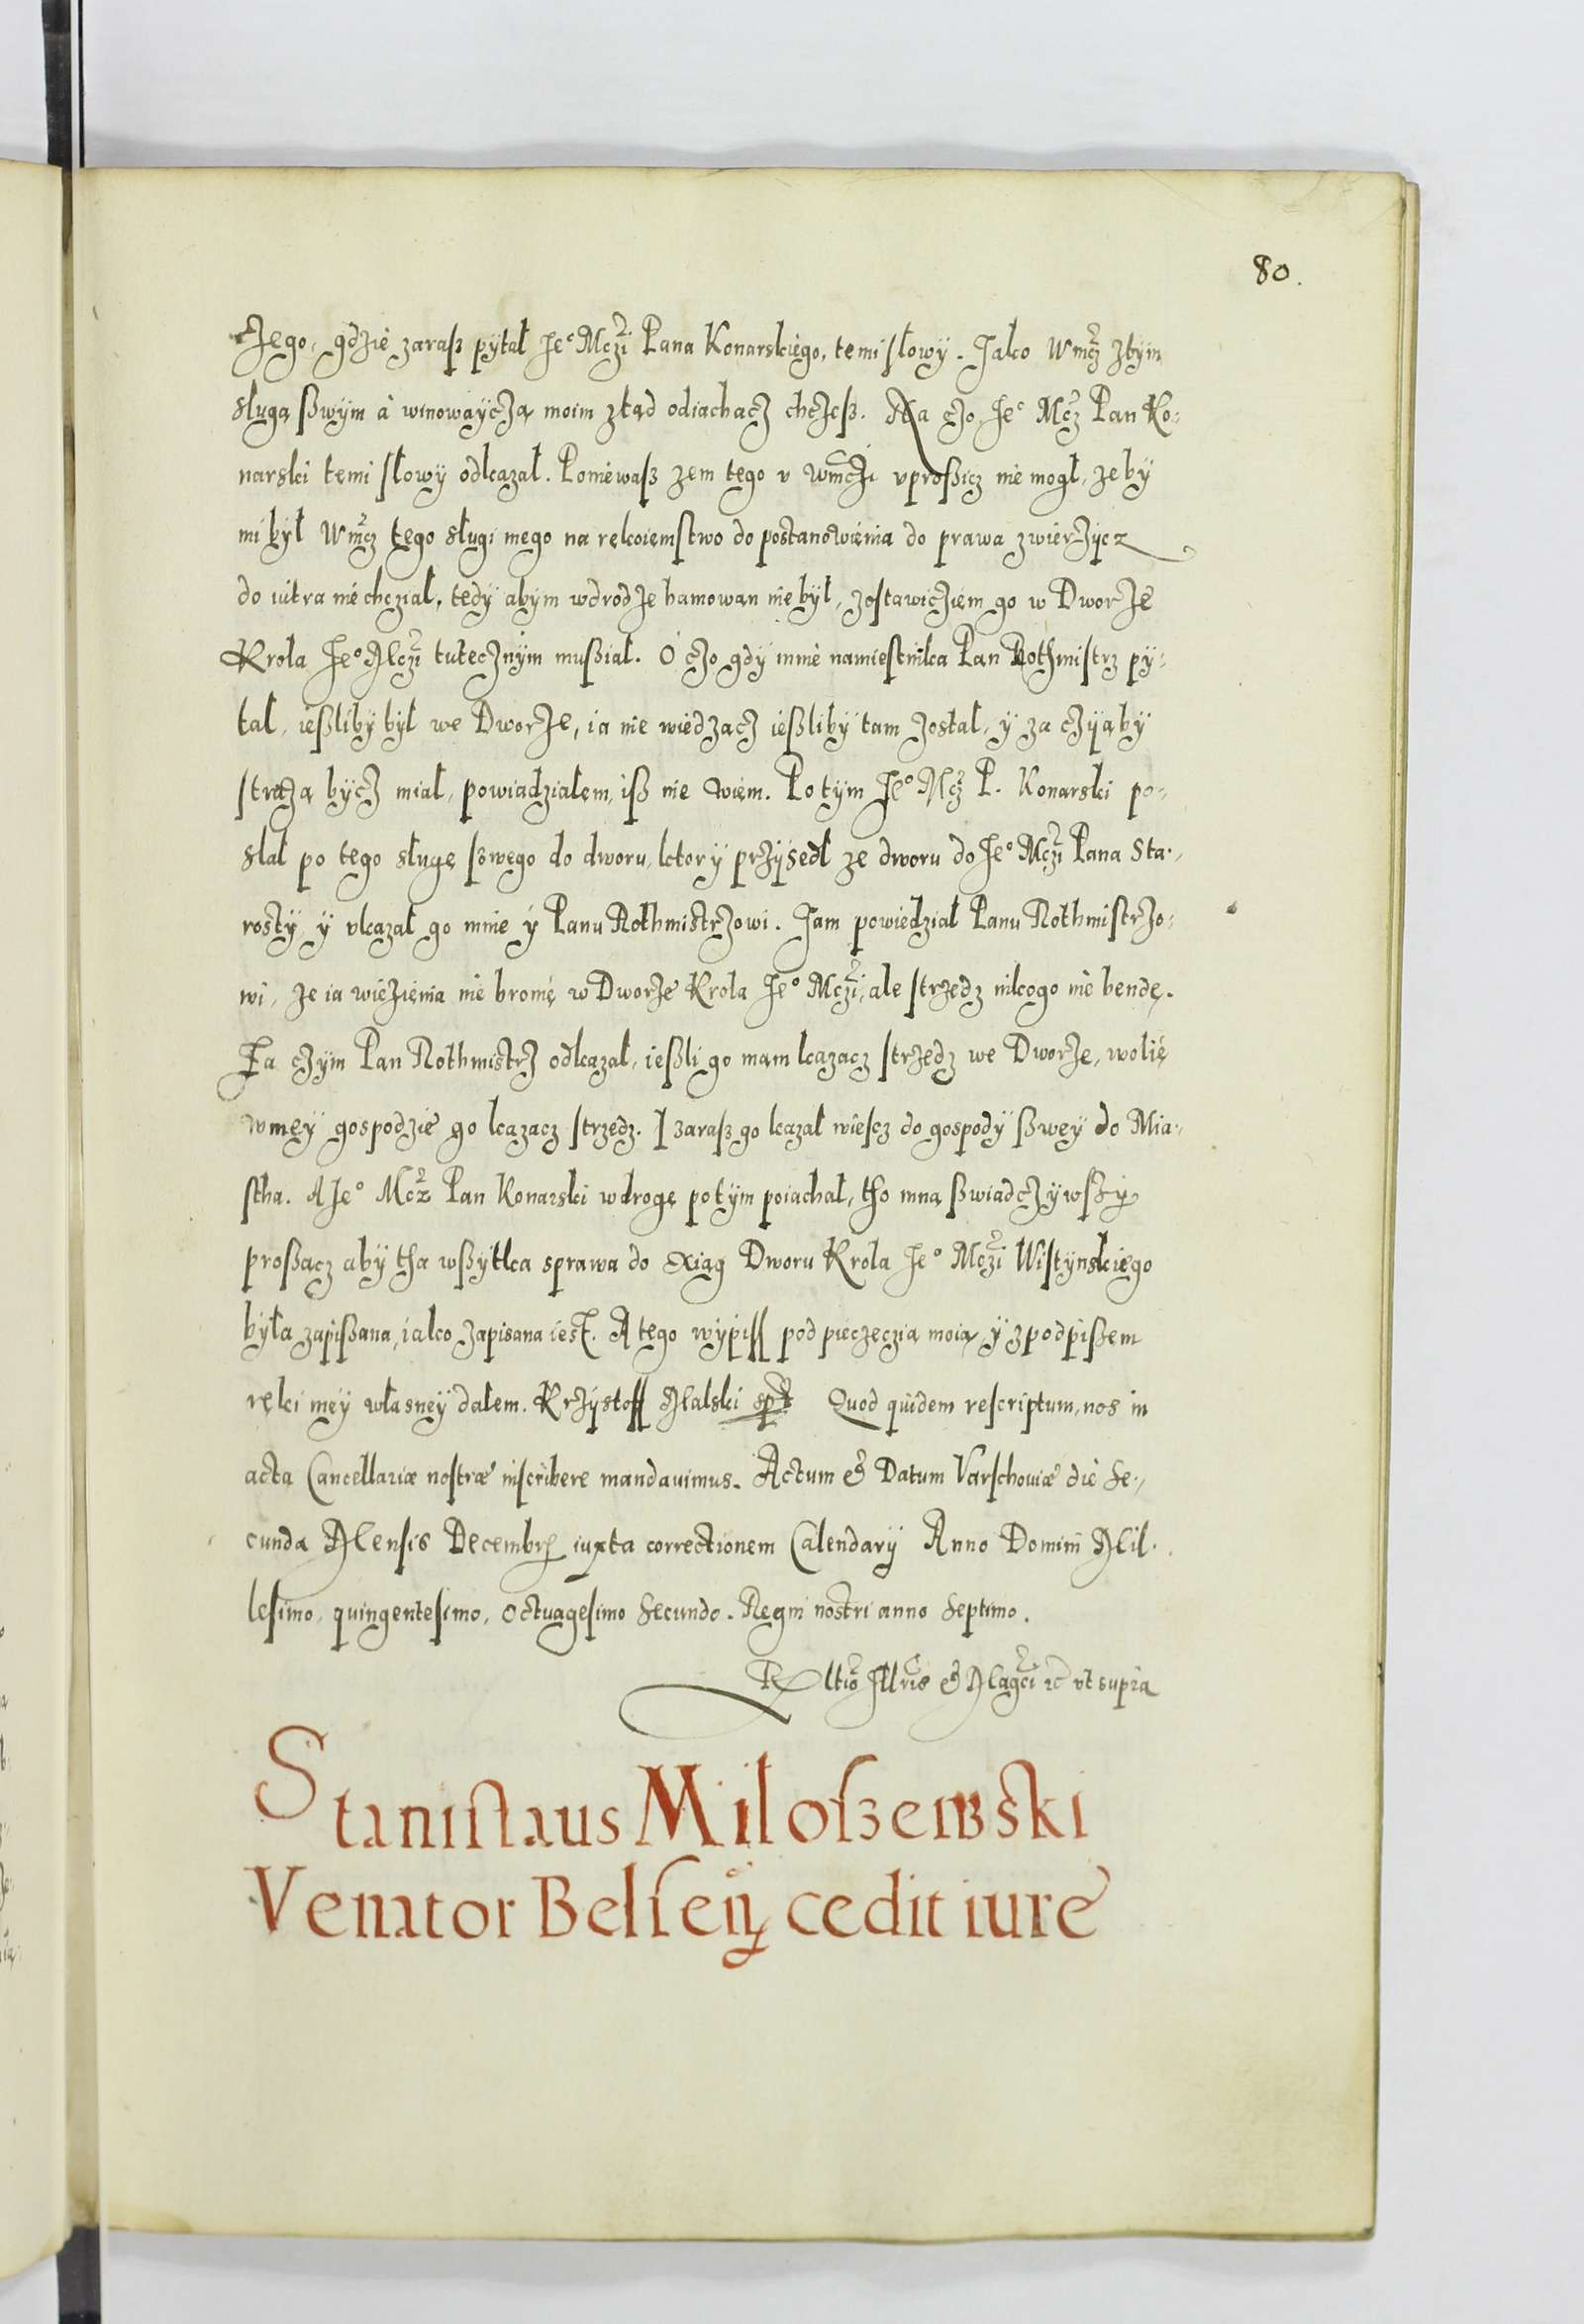 80.
Jego, gdzie zaraß pytal Je° Mczi Pana Konarskiego, temi słowy. Jako Wmcz ztym
sługą ßwym à winowayczą moim ztąd odiachacz chczeß. Na czo Je° Mcz Pan Ko-
narski temi słowy odkazał. Poniewaß zem tego v Wmczi vproßicz nie mogł, ze by
mi był Wmcz tego sługi mego na rękoiemstwo do postanowienia do prawa zwierzycz
do iutra nie chcział, tedy abym wdrodze hamowan nie był, zostawicziem go w Dworze
Krola Je° Mczi tutecznym mußiał. O czo gdy mnie namiestnika Pan Rothmistrz py-
tał, ießliby był we Dworze, ia nie wiedzacz ießliby tam został, y za czyią by
strażą bycz miał, powiadziałem, iß nie wiem. Po tym Je° Mcz P. Konarski po-
słał po tego sługę ßwego do dworu, ktory przysedł ze dworu do Je° Mczi Pana Sta-
rosty y vkazał go mnie y Panu Rothmistrzowi. Jam powiedział Panu Rothmistrzo-
wi, ze ia więzienia nie bronię w Dworze Krola Je° Mczi, ale strzedz nikogo nie bendę.
Za czym Pan Rothmistrz odkazał, ießli go mam kazacz strzedz we Dworze, wolię
w mey gospodzie go kazacz strzedz. I zaraß go kazał wiescz do gospody ßwey do Mia-
stha. A Je° Mcz Pan Konarski w drogę potym poiachał, tho mną ßwiadczywßy
proßacz aby tha wßytka sprawa do xiąg Dworu Krola Je° Mczi Wistynskiego
była zapißana, iako zapisana iest. A tego wypiß pod pieczęczią moią y z podpißem
ręki mey własney dałem. Krzystoff Malski spt Quod quidem rescriptum, nos in
acta Cancellariæ nostræ inscribere mandauimus. Actum & Datum Varschouiæ die Se-
cunda Mensis Decembr iuxta correctionem Calendarÿ Anno Domini Mil-
lesimo, quingentesimo, Octuagesimo Secundo. Regni nostri anno Septimo.
Rltio Illris & Magci ꝛc vt supra
Stanislaus Miloßewski
Venator Belsen cedit iure